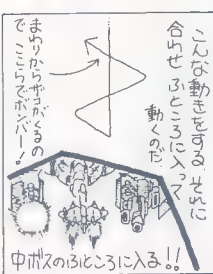 こんな動きをする。それに
合わせ ふところに入って
動くのだ
まわりからザコがくるの
で ここらでボンバー！
中ボスのふところに入る!!